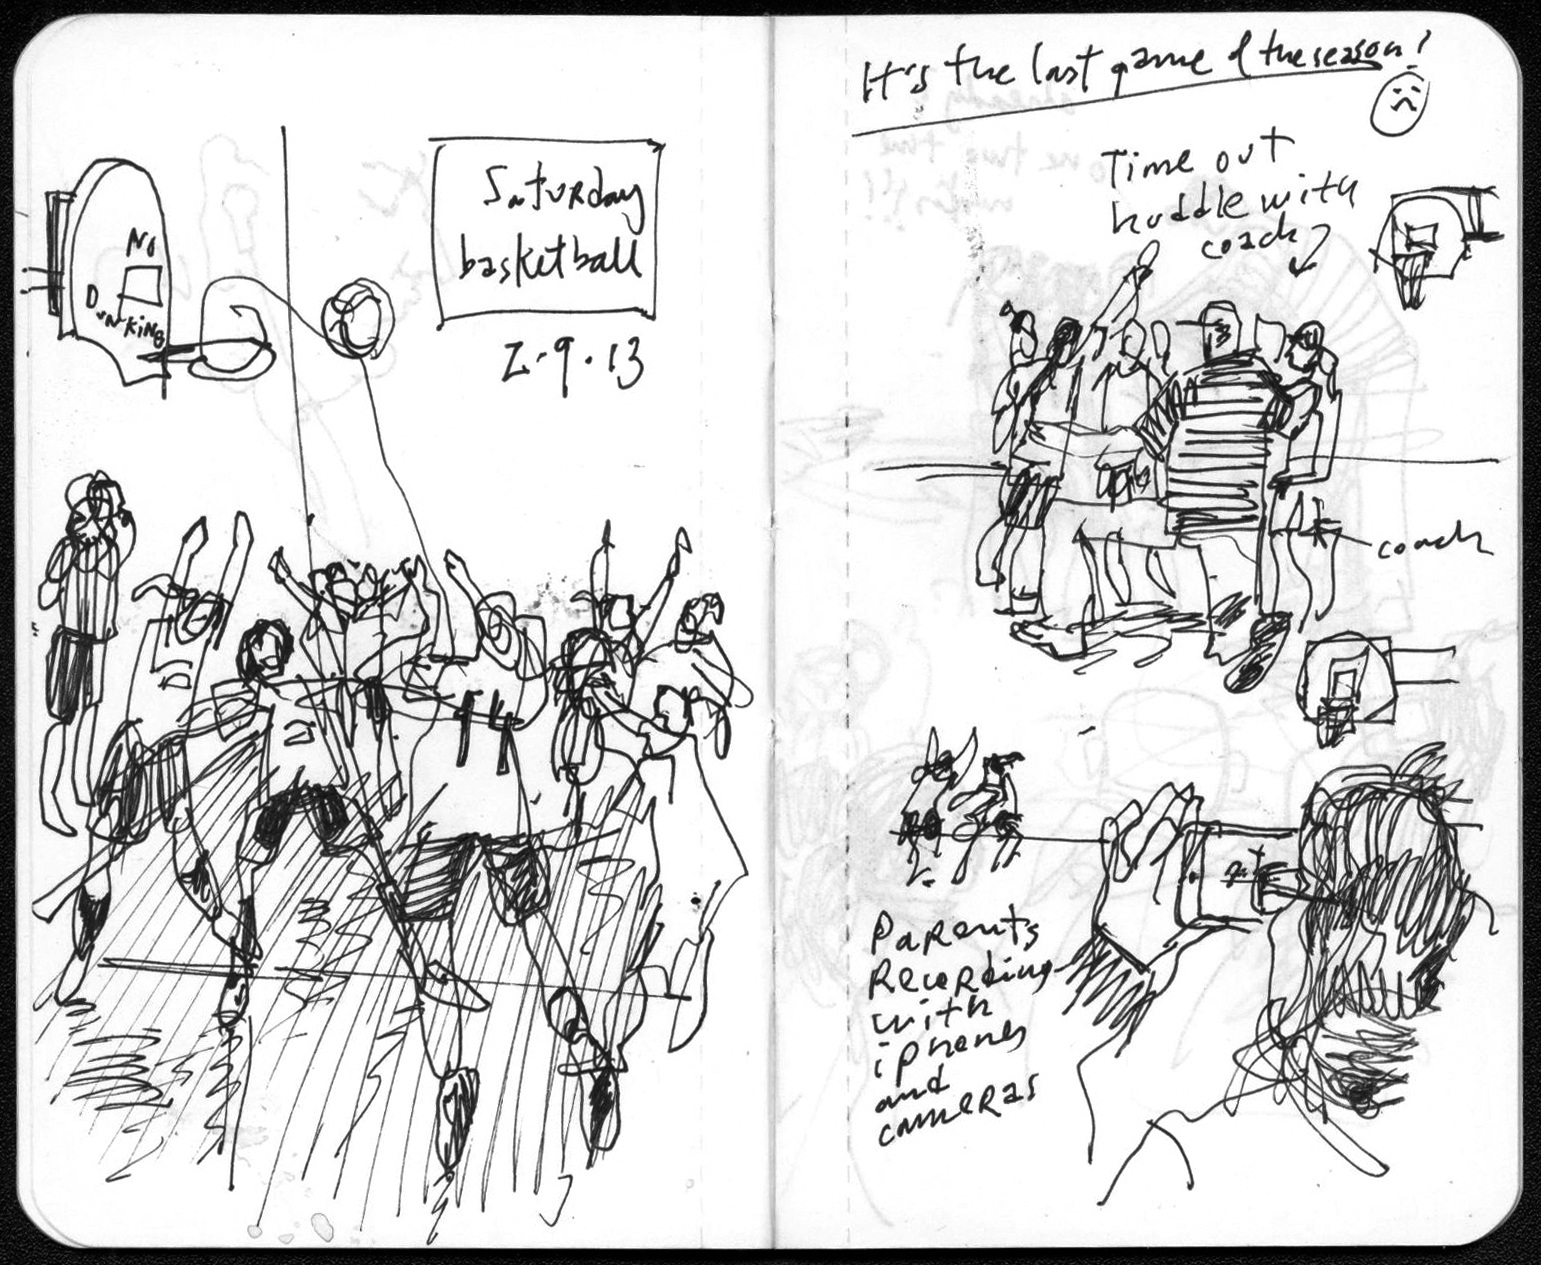 No
DUNKING
Saturday
basketball
2.9.13
It's the last game of the season!
Time out
huddle with
coach
coach
Parents
Recording
with
iphones
and
cameras